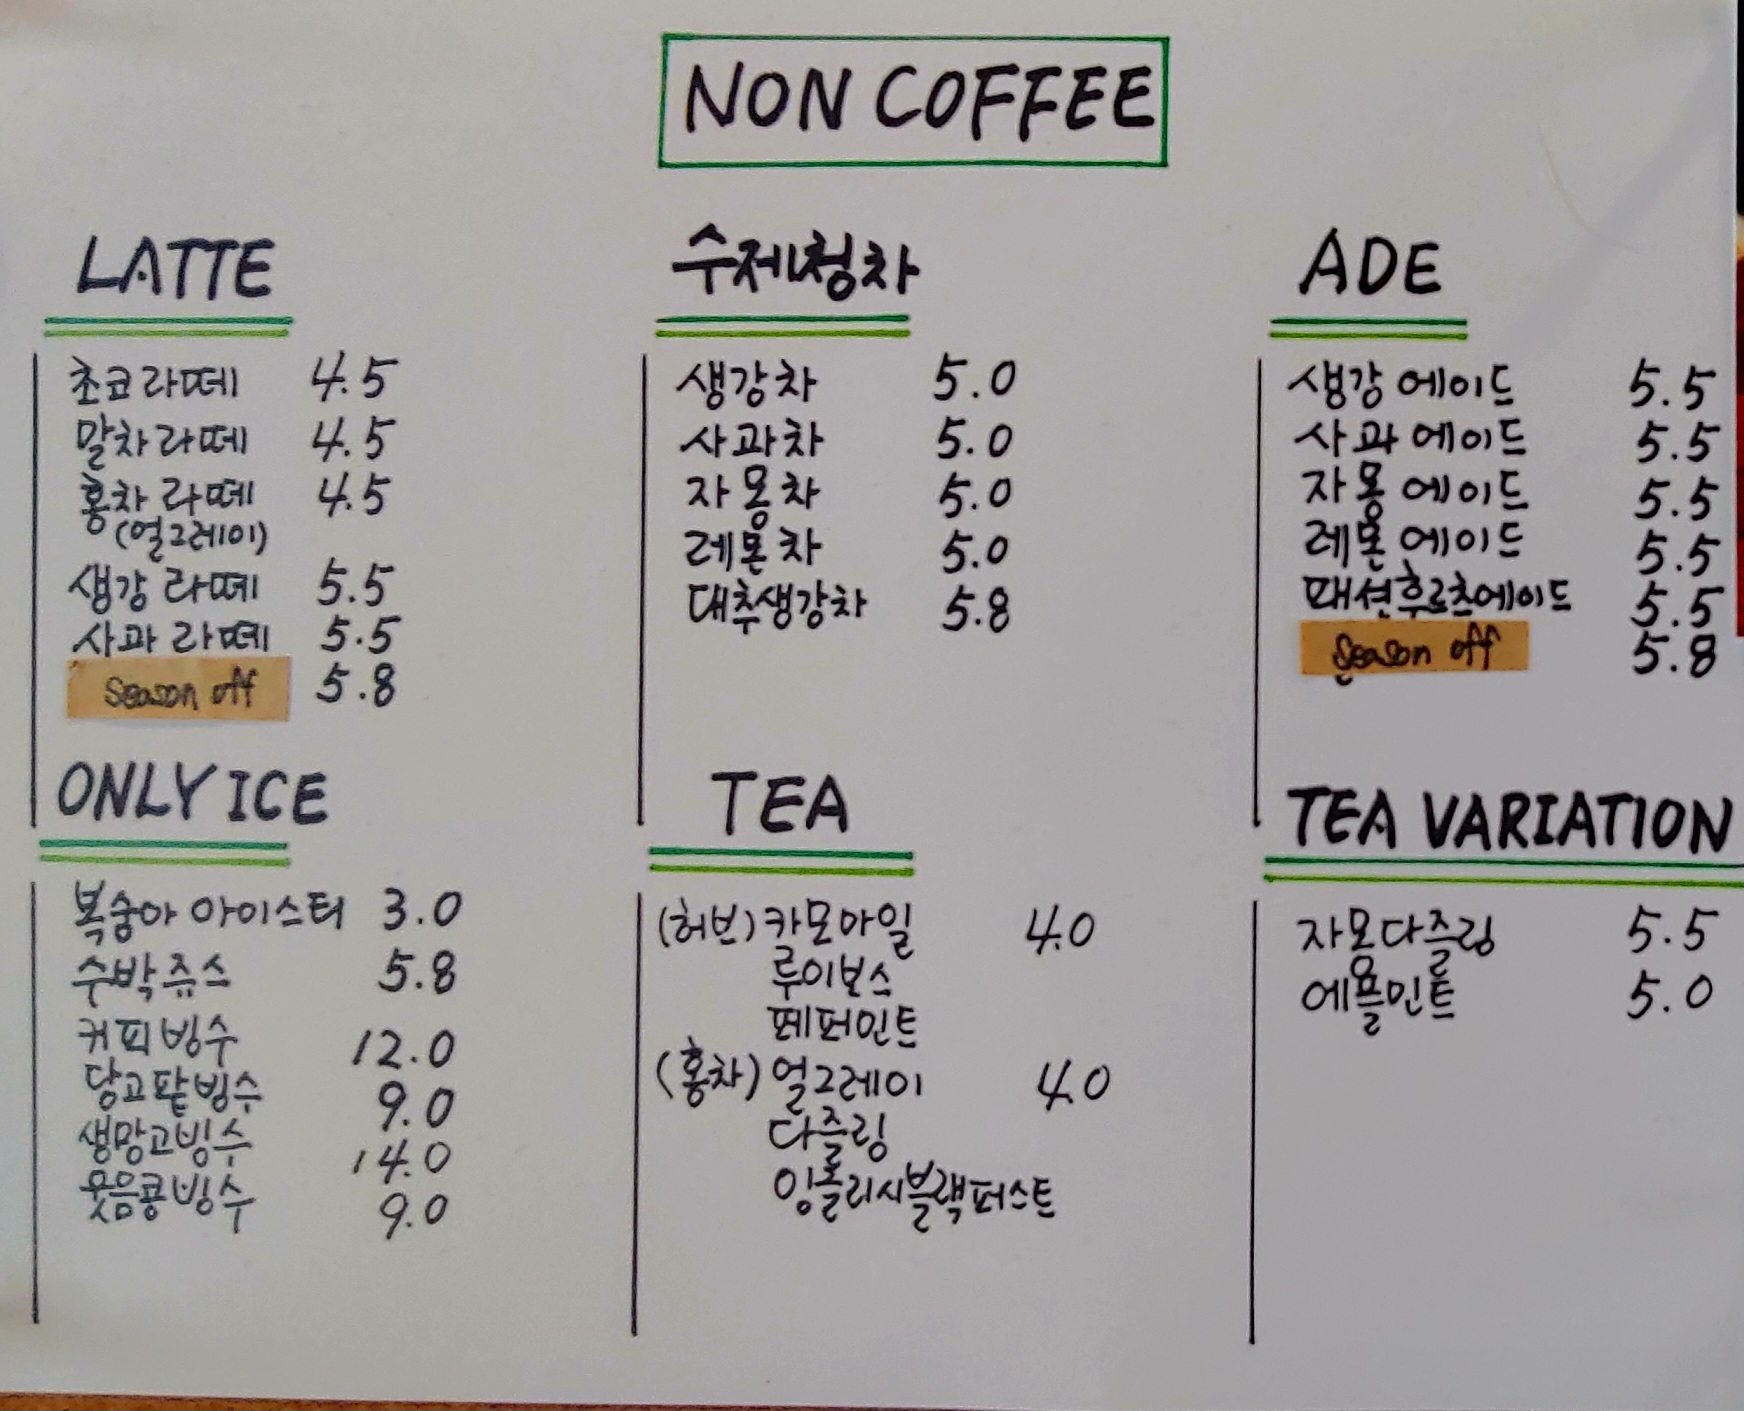 NON COFFEE
LATTE
초코라떼 4.5
말차라떼 4.5
홍차라떼 4.5
(얼그레이)
생강라떼 5.5
사과라떼 5.5
season off 5.8
수제청차
생강차 5.0
사과차 5.0
자몽차 5.0
레몬차 5.0
대추생강차 5.8
ADE
생강에이드 5.5
사과에이드 5.5
자몽에이드 5.5
레몬에이드 5.5
패션후르츠에이드 5.5
season off 5.8
ONLY ICE
복숭아 아이스티 3.0
수박쥬스 5.8
커피빙수 12.0
당고팥빙수 9.0
생망고빙수 14.0
볶음콩빙수 9.0
TEA
(허브) 카모마일 4.0
루이보스
페퍼민트
(홍차) 얼그레이 4.0
다즐링
잉글리시블랙퍼스트
TEA VARIATION
자몽다즐링 5.5
애플민트 5.0